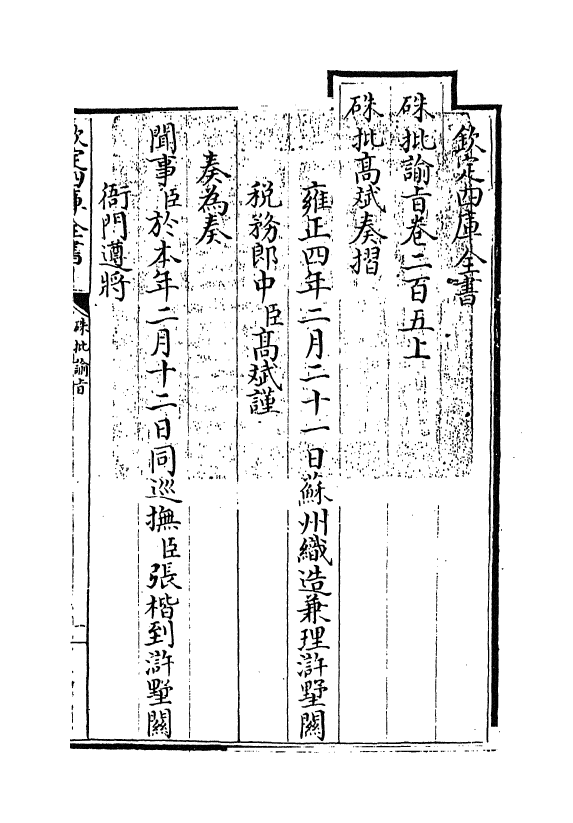 欽定四庫全書
硃批諭旨卷二百五上
硃批高斌奏摺
雍正四年二月二十一日蘇州織造兼理滸墅關
稅務郎中臣高斌謹
奏為奏
聞事臣於本年二月十二日同巡撫臣張楷到滸墅關
衙門遵將
欽定四庫全書
硃批諭旨